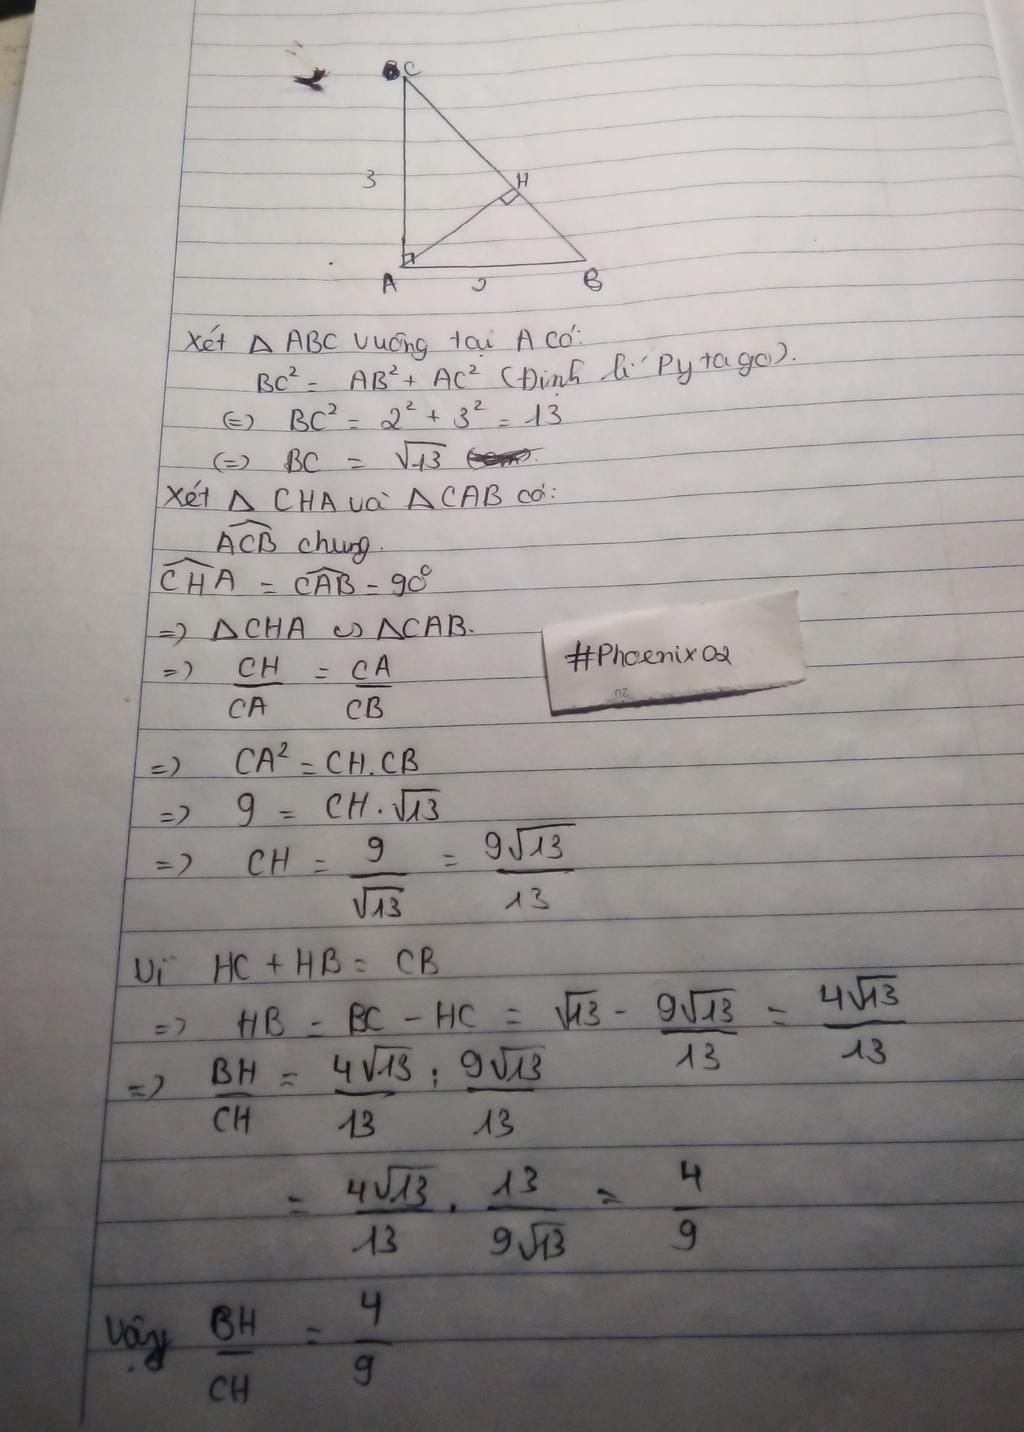 C
3
H
A
2
B
Xét △ ABC vuông tại A có:
BC² = AB² + AC² (Định lí Pytago).
(=) BC² = 2² + 3² = 13
(=) BC = √13
Xét △ CHA và △ CAB có:
ACB chung.
CHA = CAB = 90°
=) △CHA ∽ △CAB.
=) CH/CA = CA/CB
#Phoenix02
=) CA² = CH.CB
=) 9 = CH.√13
=) CH = 9/√13 = 9√13/13
Vì HC + HB = CB
=) HB = BC - HC = √13 - 9√13/13 = 4√13/13
=) BH/CH = 4√13/13 : 9√13/13
= 4√13/13 . 13/9√13 = 4/9
Vậy BH/CH = 4/9